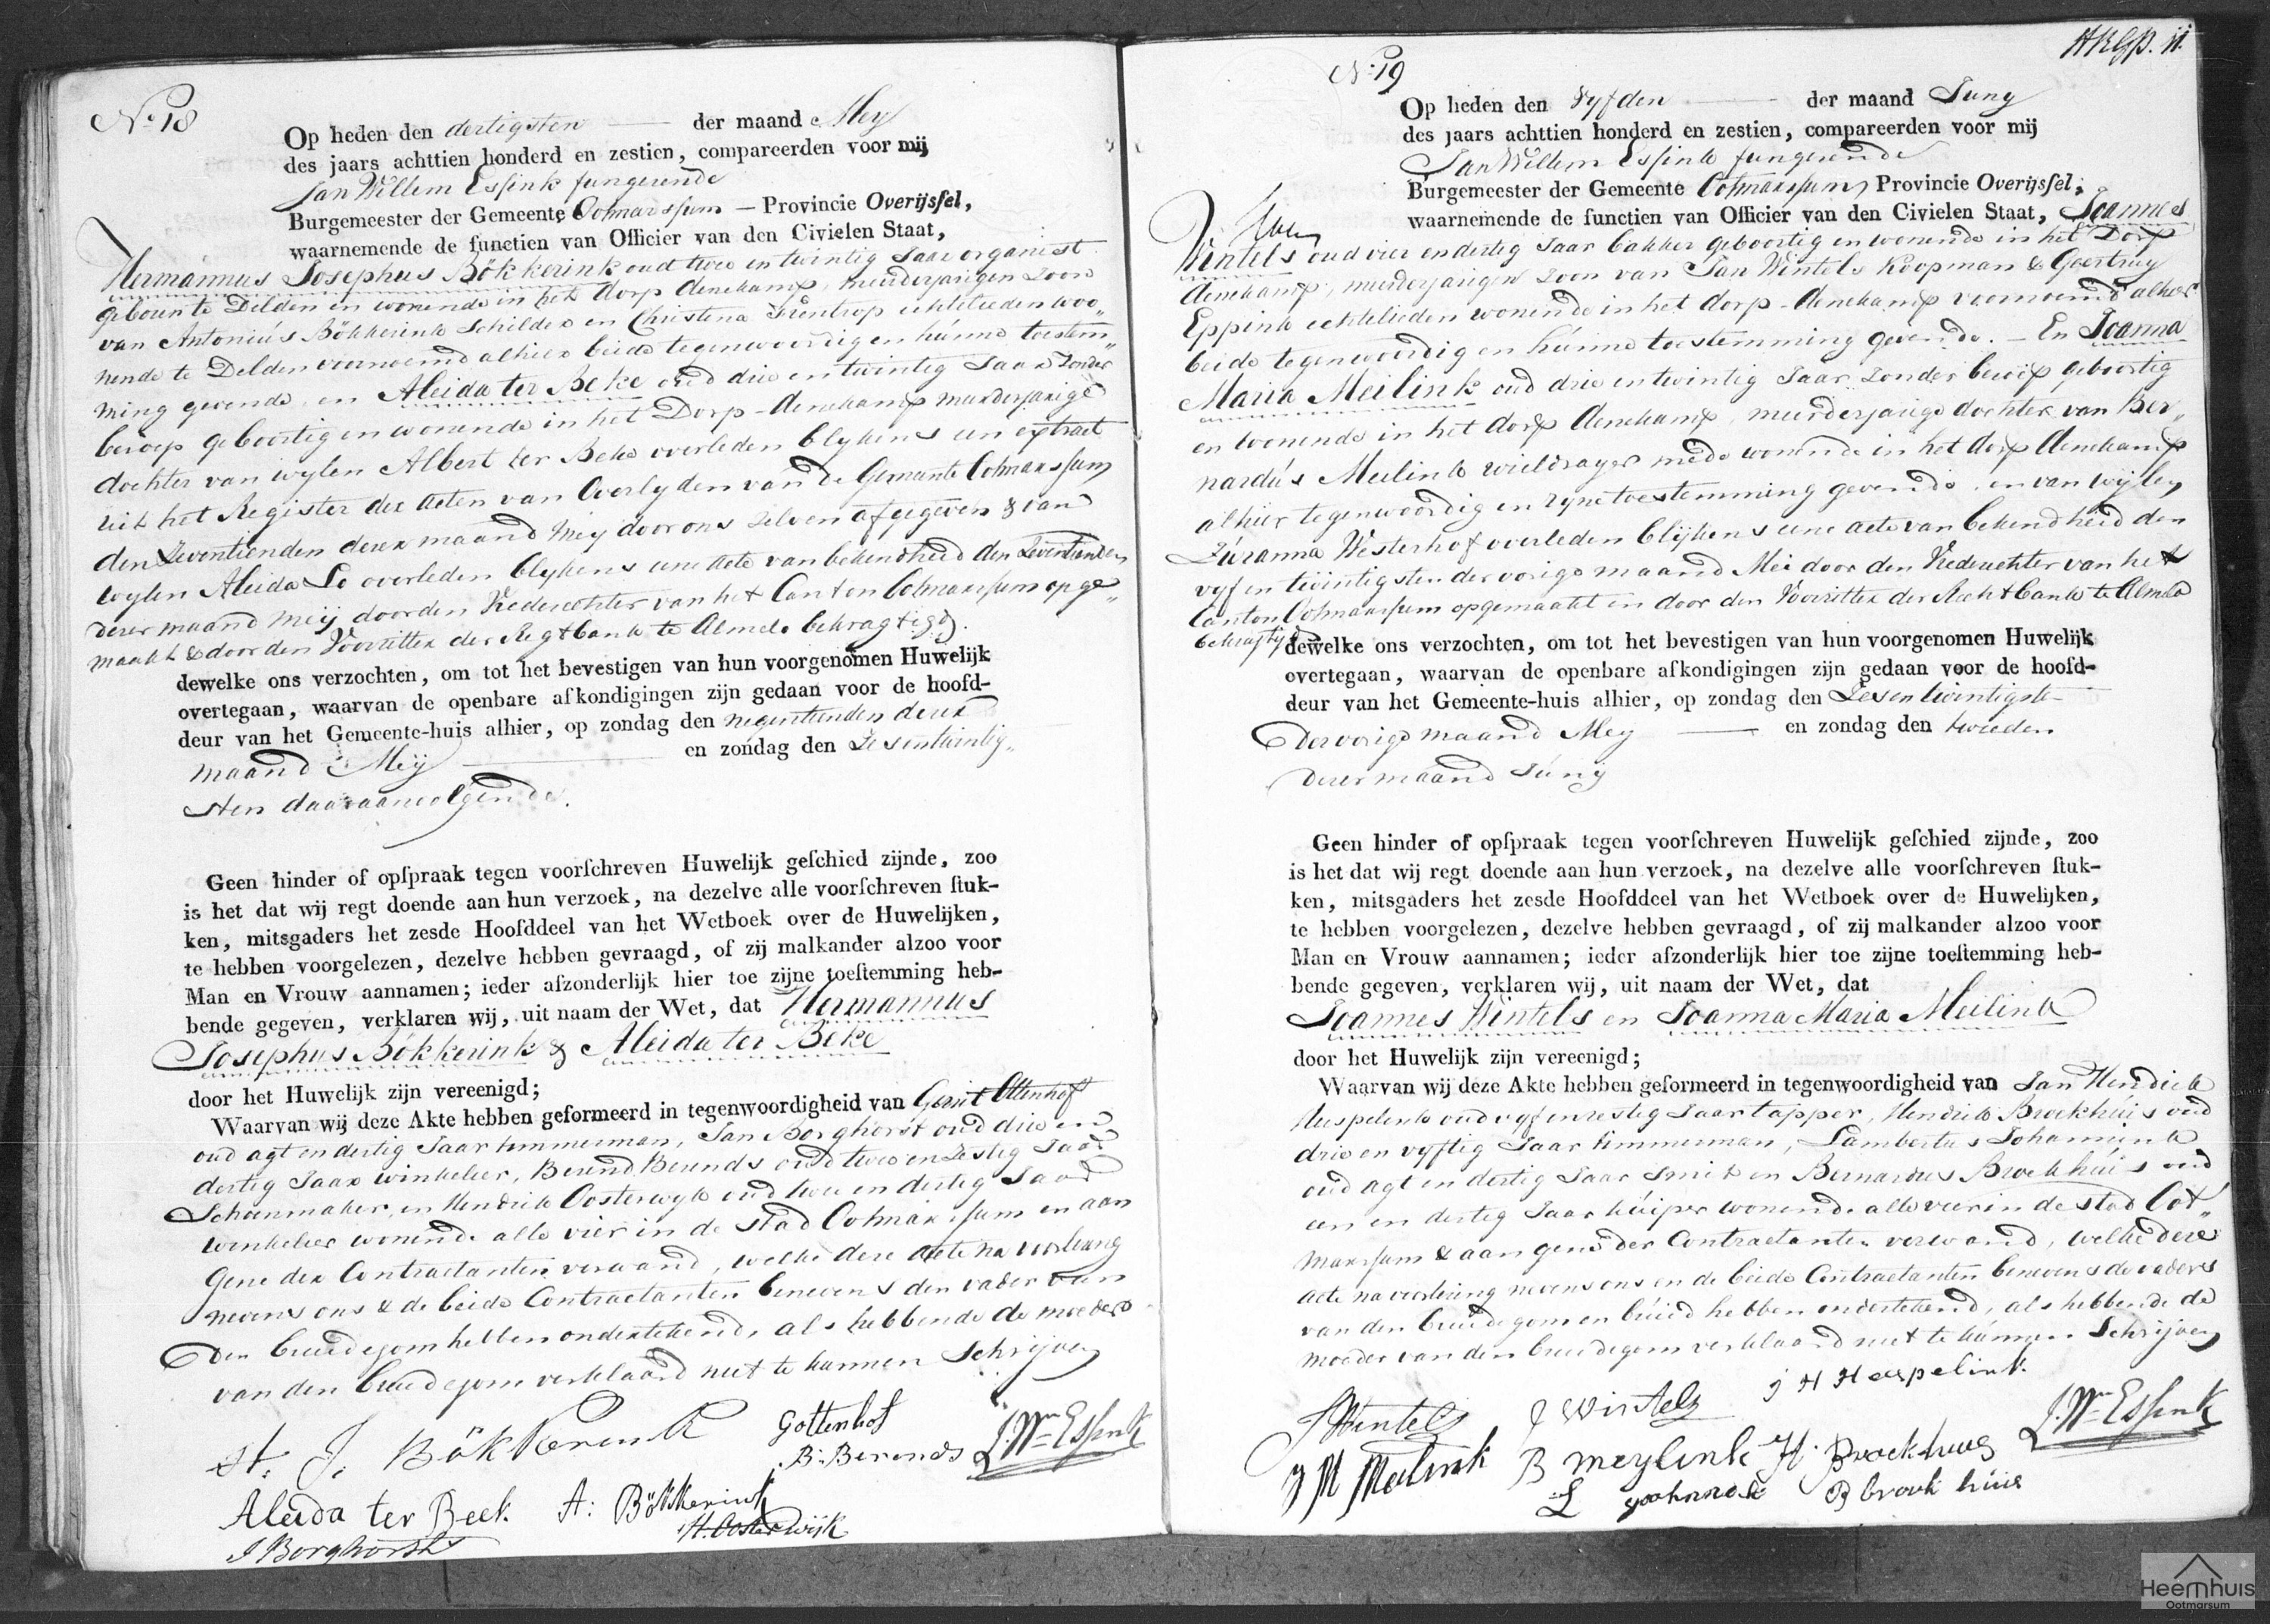 No 18
Op heden den dertigsten der maand Mey
des jaars achttien honderd en zestien, compareerden voor mij
Jan Willem Essink fungerende
Burgemeester der Gemeente Ootmarssum — Provincie Overijsſel,
waarnemende de functien van Officier van den Civielen Staat,
Hermannus Josephus Bökkerink oud twee en twintig Jaar organist
geboren te Delden en wonende in het dorp denekamp, meerderjarigen zoon
van Antonius Bökkerink Schilder en Christina Frentrop echtelieden woo„
nende te Delden voornoemd alhier beide tegenwoordig en hunne toestem„
ming gevende, en Aleida ter Beke oud drie en twintig Jaar zonder
beroep geboortig en wonende in het Dorp Denekamp meerderjarige
dochter van wylen Albert ter Beke overleden blykens een extract
uit het Register der acten van Overlyden van de Gemeente Ootmarssum
den Zeventienden dezer maand Mey door ons zelven afgegeven & van
wylen Aleida Lo overleden blykens eene acte van bekendheid den Zeventienden
dezer maand Meij door den Vrederechter van het Canton Ootmarssum opge„
maakt & door den Voorzitter der Regtbank te Almelo bekragtigd.
dewelke ons verzochten, om tot het bevestigen van hun voorgenomen Huwelijk
overtegaan, waarvan de openbare afkondigingen zijn gedaan voor de hoofd-
deur van het Gemeente-huis alhier, op zondag den negentienden dezer
maand Meij en zondag den Zesentwintig„
sten daaraanvolgende.
Geen hinder of opſpraak tegen voorſchreven Huwelijk geſchied zijnde, zoo
is het dat wij regt doende aan hun verzoek, na dezelve alle voorſchreven ſtuk-
ken, mitsgaders het zesde Hoofddeel van het Wetboek over de Huwelijken,
te hebben voorgelezen, dezelve hebben gevraagd, of zij malkander alzoo voor
Man en Vrouw aannamen; ieder afzonderlijk hier toe zijne toeſtemming heb-
bende gegeven, verklaren wij, uit naam der Wet, dat Hermannus
Josephus Bökkerink & Aleida ter Beke
door het Huwelijk zijn vereenigd;
Waarvan wij deze Akte hebben geformeerd in tegenwoordigheid van Gerrit Ottenhof
oud agt en dertig Jaar timmerman, Jan Borghorst oud drie en
dertig Jaar winkelier, Berend Berends oud twee en Zestig Jaar
Schoenmaker, en Hendrik Oosterwyk oud twee en dertig Jaar
winkelier wonende alle vier in de stad Ootmarssum en aan
gene der Contractanten verwand, welke deze acte na voorlezing
nevens ons & de beide Contractanten benevens den vader van
den bruidegom hebben ondertekend, als hebbende de moeder
van den bruidegom verklaard niet te kunnen Schrijven
H: J: Bökkerink
Gottenhof
B: Berends
J. Wm Essink
Aleida ter Beek
A: Bökkerink
H. Oosterwijk
J Borghorst
No 19
Op heden den Vyfden der maand Juny
des jaars achttien honderd en zestien, compareerden voor mij
Jan Willem Essink fungerende
Burgemeester der Gemeente Ootmarssum Provincie Overijsſel,
waarnemende de functien van Officier van den Civielen Staat, Joannes
Wintels oud vier en dertig Jaar bakker geboortig en wonende in het Dorp
denekamp, meerderjarigen zoon van Jan Wintels Koopman & Geertruy
Eppink echtelieden wonende in het dorp denekamp voornoemd alhier
beide tegenwoordig en hunne toestemming gevende. — En Joanna
Maria Meilink oud drie en twintig Jaar zonder beroep geboortig
en wonende in het dorp denekamp, meerderjarige dochter van Ber„
nardus Meilink wieldrayer mede wonende in het dorp denekamp
alhier tegenwoordig en zyne toestemming gevende, en van wijlen
Zuzanna Westerhof overleden blijkens eene acte van bekendheid den
vyf en twintigsten der vorige maand Mei door den Vrederechter van het
Canton Ootmarssum opgemaakt en door den Voorzitter der Rechtbank te Almelo
bekragtigd
dewelke ons verzochten, om tot het bevestigen van hun voorgenomen Huwelijk
overtegaan, waarvan de openbare afkondigingen zijn gedaan voor de hoofd-
deur van het Gemeente-huis alhier, op zondag den Zesentwintigste
der vorige maand Mey en zondag den tweeden
dezer maand Junij
Geen hinder of opſpraak tegen voorſchreven Huwelijk geſchied zijnde, zoo
is het dat wij regt doende aan hun verzoek, na dezelve alle voorſchreven ſtuk-
ken, mitsgaders het zesde Hoofddeel van het Wetboek over de Huwelijken,
te hebben voorgelezen, dezelve hebben gevraagd, of zij malkander alzoo voor
Man en Vrouw aannamen; ieder afzonderlijk hier toe zijne toeſtemming heb-
bende gegeven, verklaren wij, uit naam der Wet, dat
Joannes Wintels en Joanna Maria Meilink
door het Huwelijk zijn vereenigd;
Waarvan wij deze Akte hebben geformeerd in tegenwoordigheid van Jan Hendrik
Huspelink oud vyf en zestig Jaar tapper, Hendrik Broekhuis oud
drie en vyftig Jaar timmerman, Lambertus Johannink
oud agt en dertig Jaar Smit en Bernardus Broekhuis oud
een en dertig Jaar kuiper wonende alle vier in de stad Oot„
marssum & aan gene der Contractanten verwand, welke deze
acte na voorlezing nevens ons en de beide Contractanten benevens de vaders
van den bruidegom en bruid hebben ondertekend, als hebbende de
moeder van den bruidegom verklaard niet te kunnen Schrijven
J Wintels
J Wintels
J H Hespelink
J. Wm Essink
J M Meilink
B Meylink
H. Broekhuis
L Yoohannek
B broek huis
Heemhuis
Ootmarsum